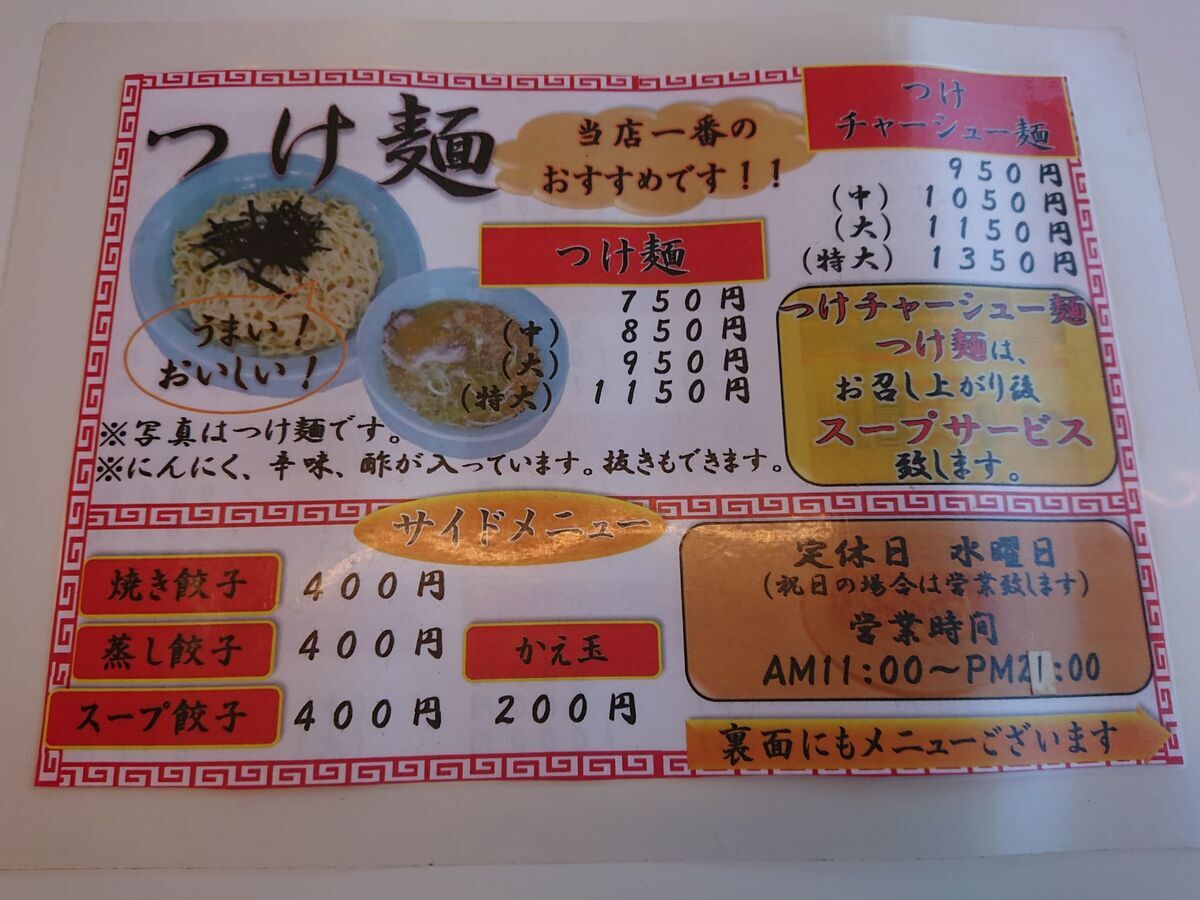 つけ麺
当店一番の
おすすめです！！
うまい！
おいしい！
つけ麺
750円
(中) 850円
(大) 950円
(特大) 1150円
つけ
チャーシュー麺
950円
(中) 1050円
(大) 1150円
(特大) 1350円
つけチャーシュー麺
つけ麺は、
お召し上がり後
スープサービス
致します。
※写真はつけ麺です。
※にんにく、辛味、酢が入っています。抜きもできます。
サイドメニュー
焼き餃子 400円
蒸し餃子 400円
スープ餃子 400円
かえ玉
200円
定休日 水曜日
(祝日の場合は営業致します)
営業時間
AM11:00～PM21:00
裏面にもメニューございます